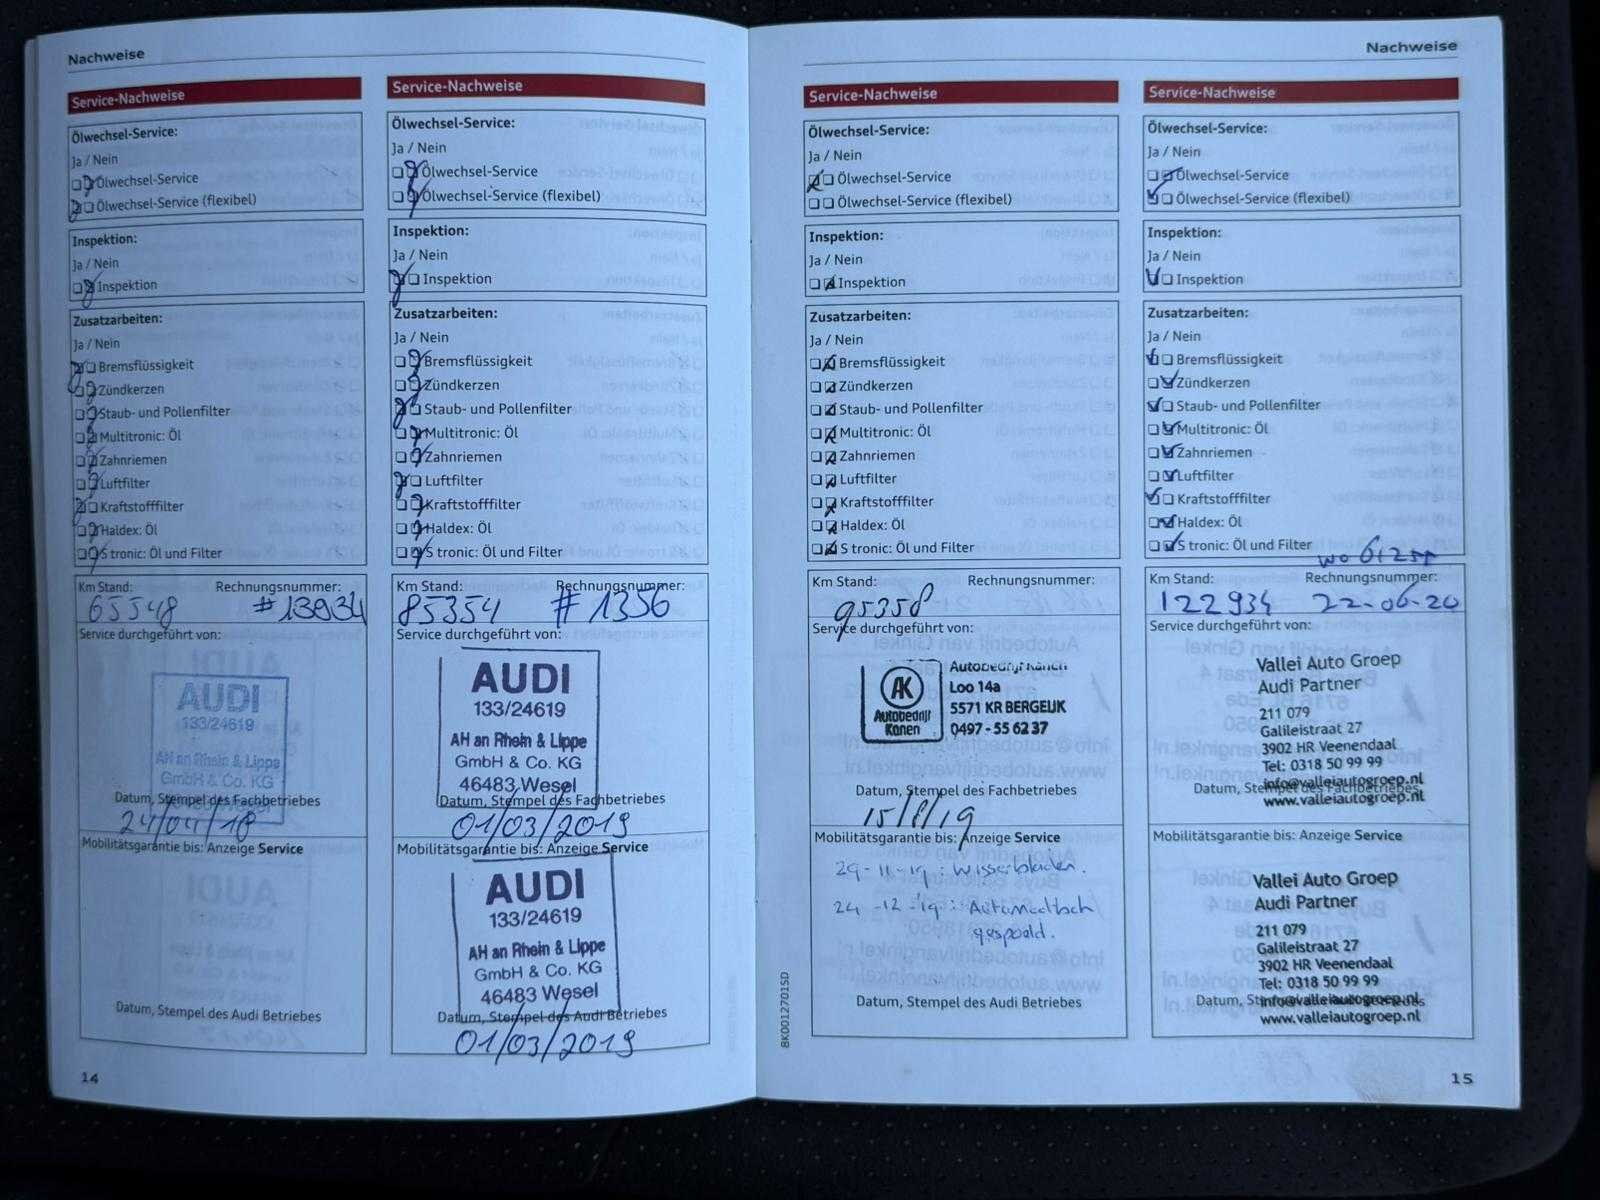 Nachweise
Service-Nachweise
Ölwechsel-Service:
Ja / Nein
Ölwechsel-Service
Ölwechsel-Service (flexibel)
Inspektion:
Ja / Nein
Inspektion
Zusatzarbeiten:
Ja / Nein
Bremsflüssigkeit
Zündkerzen
Staub- und Pollenfilter
Multitronic: Öl
Zahnriemen
Luftfilter
Kraftstofffilter
Haldex: Öl
S tronic: Öl und Filter
Km Stand: Rechnungsnummer:
65548 #13934
Service durchgeführt von:
AUDI
133/24619
AH an Rhein & Lippe
GmbH & Co. KG
Datum, Stempel des Fachbetriebes
24/04/18
Mobilitätsgarantie bis: Anzeige Service
Datum, Stempel des Audi Betriebes
14
Service-Nachweise
Ölwechsel-Service:
Ja / Nein
Ölwechsel-Service
Ölwechsel-Service (flexibel)
Inspektion:
Ja / Nein
Inspektion
Zusatzarbeiten:
Ja / Nein
Bremsflüssigkeit
Zündkerzen
Staub- und Pollenfilter
Multitronic: Öl
Zahnriemen
Luftfilter
Kraftstofffilter
Haldex: Öl
S tronic: Öl und Filter
Km Stand: Rechnungsnummer:
85354 #1356
Service durchgeführt von:
AUDI
133/24619
AH an Rhein & Lippe
GmbH & Co. KG
46483 Wesel
Datum, Stempel des Fachbetriebes
01/03/2019
Mobilitätsgarantie bis: Anzeige Service
AUDI
133/24619
AH an Rhein & Lippe
GmbH & Co. KG
46483 Wesel
Datum, Stempel des Audi Betriebes
01/03/2019
Nachweise
Service-Nachweise
Ölwechsel-Service:
Ja / Nein
Ölwechsel-Service
Ölwechsel-Service (flexibel)
Inspektion:
Ja / Nein
Inspektion
Zusatzarbeiten:
Ja / Nein
Bremsflüssigkeit
Zündkerzen
Staub- und Pollenfilter
Multitronic: Öl
Zahnriemen
Luftfilter
Kraftstofffilter
Haldex: Öl
S tronic: Öl und Filter
Km Stand: Rechnungsnummer:
95358
Service durchgeführt von:
AK
Autobedrijf
Kanen
Autobedrijf Kanen
Loo 14a
5571 KR BERGEIJK
0497 - 55 62 37
Datum, Stempel des Fachbetriebes
15/8/19
Mobilitätsgarantie bis: Anzeige Service
29-11-19: Wisserbladen.
24-12-19: Automaatbak
gespoeld.
Datum, Stempel des Audi Betriebes
8K0012701SD
Service-Nachweise
Ölwechsel-Service:
Ja / Nein
Ölwechsel-Service
Ölwechsel-Service (flexibel)
Inspektion:
Ja / Nein
Inspektion
Zusatzarbeiten:
Ja / Nein
Bremsflüssigkeit
Zündkerzen
Staub- und Pollenfilter
Multitronic: Öl
Zahnriemen
Luftfilter
Kraftstofffilter
Haldex: Öl
S tronic: Öl und Filter
Km Stand: Rechnungsnummer:
122934 22-06-20
Service durchgeführt von:
Vallei Auto Groep
Audi Partner
211 079
Galileistraat 27
3902 HR Veenendaal
Tel: 0318 50 99 99
info@valleiautogroep.nl
Datum, Stempel des Fachbetriebes
www.valleiautogroep.nl
Mobilitätsgarantie bis: Anzeige Service
Vallei Auto Groep
Audi Partner
211 079
Galileistraat 27
3902 HR Veenendaal
Tel: 0318 50 99 99
info@valleiautogroep.nl
Datum, Stempel des Audi Betriebes
www.valleiautogroep.nl
15